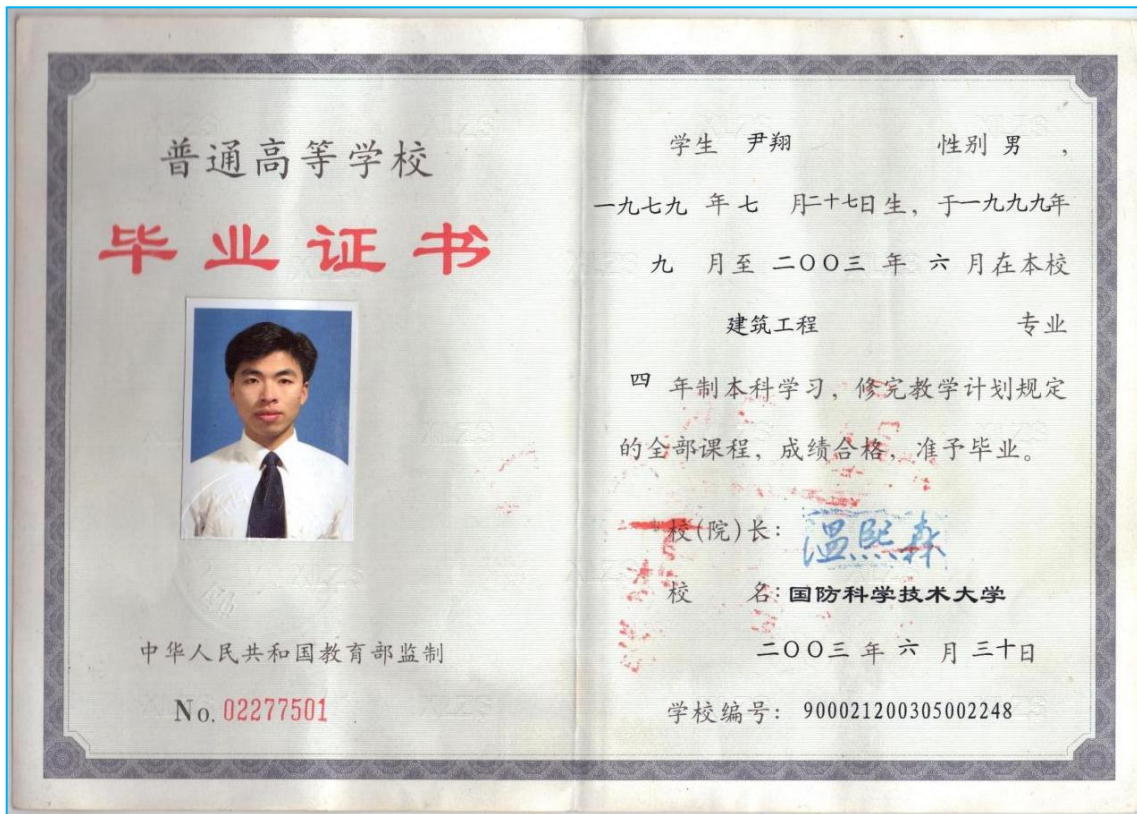 普通高等学校
毕业证书
中华人民共和国教育部监制
No. 02277501
学生 尹翔 性别 男 ,
一九七九 年 七 月二十七日生, 于一九九九年
九 月至 二〇〇三 年 六 月在本校
建筑工程 专业
四 年制本科学习, 修完教学计划规定
的全部课程, 成绩合格, 准予毕业。
校(院)长: 温熙森
校 名: 国防科学技术大学
二〇〇三 年 六 月 三十日
学校编号: 900021200305002248